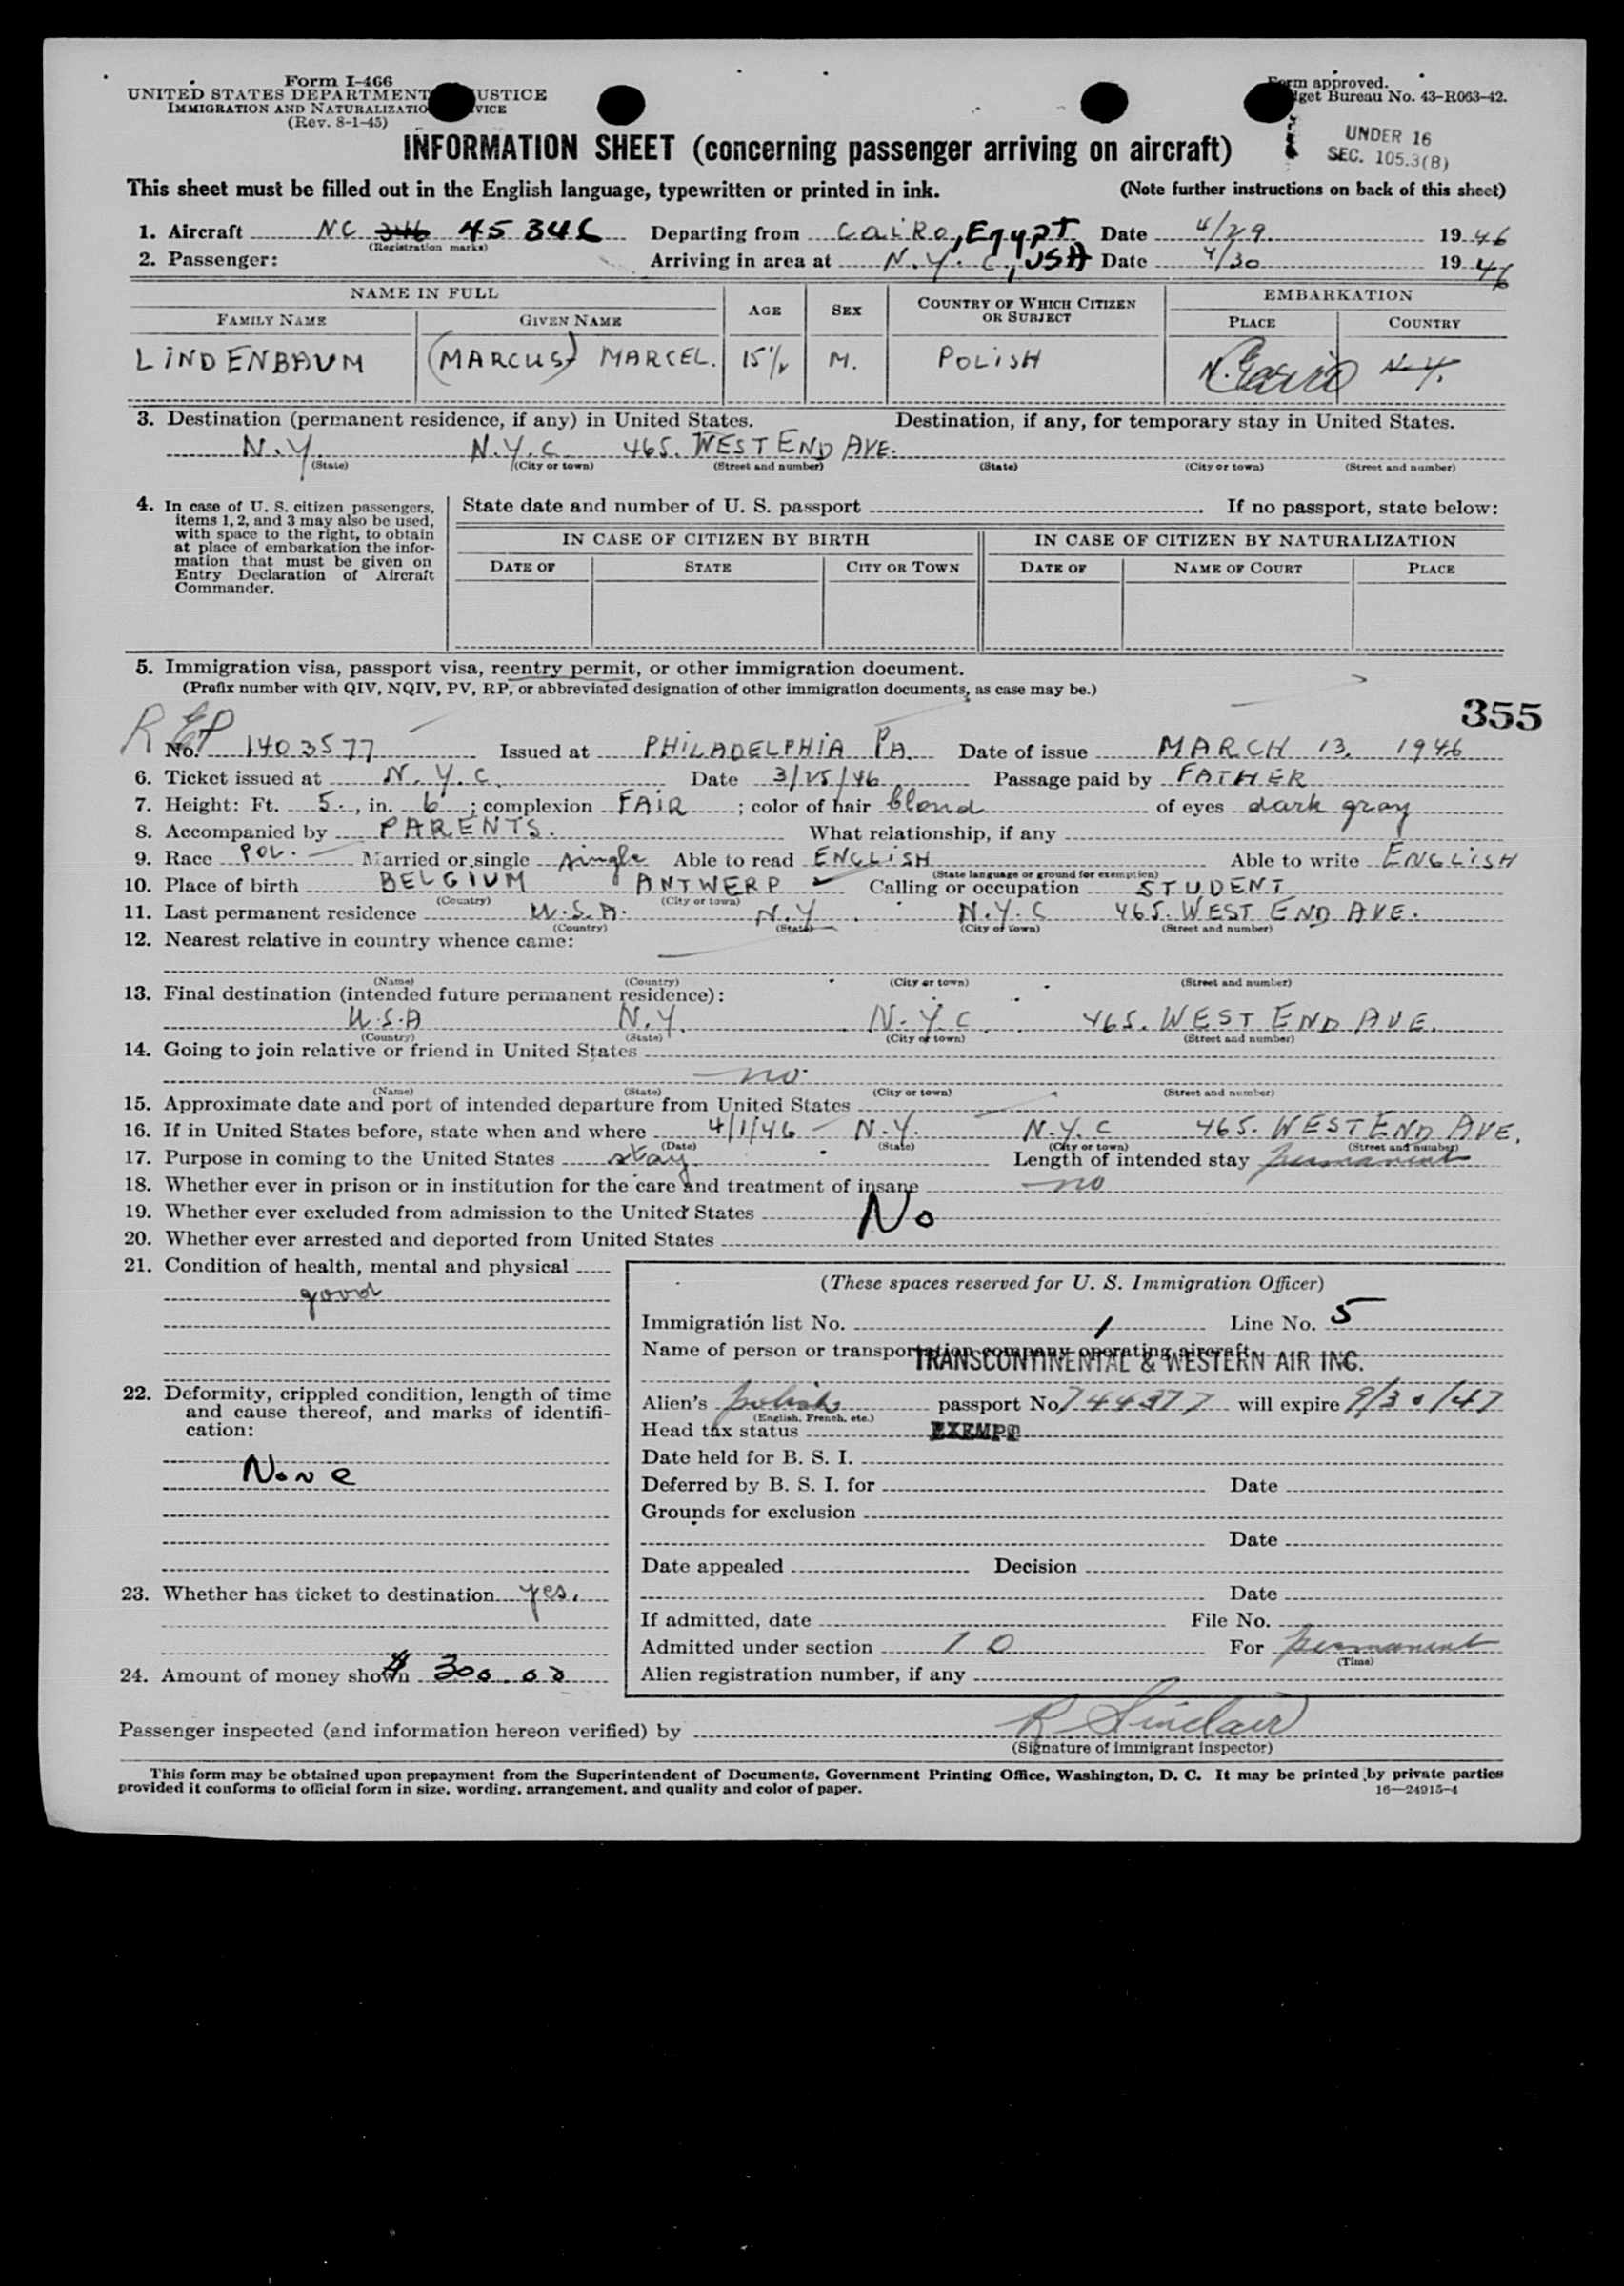 Form I-466
UNITED STATES DEPARTMENT USTICE
IMMIGRATION AND NATURALIZATIO VICE
(Rev. 8-1-45)
Form approved.
get Bureau No. 43-R063-42.
UNDER 16
SEC. 105.3(B)
INFORMATION SHEET (concerning passenger arriving on aircraft)
This sheet must be filled out in the English language, typewritten or printed in ink. (Note further instructions on back of this sheet)
1. Aircraft NC 346 45346 Departing from CAIRO, EgypT Date 4/29 1946
(Registration marks)
2. Passenger: Arriving in area at N.Y.C, USA Date 4/30 1946
NAME IN FULL AGE SEX COUNTRY OF WHICH CITIZEN OR SUBJECT EMBARKATION
FAMILY NAME GIVEN NAME PLACE COUNTRY
LINDENBAUM (MARCUS) MARCEL. 15½ M. POLISH N. Cairo N.Y.
3. Destination (permanent residence, if any) in United States. Destination, if any, for temporary stay in United States.
N.Y. N.Y.C 465. WEST END AVE.
(State) (City or town) (Street and number) (State) (City or town) (Street and number)
4. In case of U. S. citizen passengers, items 1, 2, and 3 may also be used, with space to the right, to obtain at place of embarkation the information that must be given on Entry Declaration of Aircraft Commander.
State date and number of U. S. passport If no passport, state below:
IN CASE OF CITIZEN BY BIRTH IN CASE OF CITIZEN BY NATURALIZATION
DATE OF STATE CITY OR TOWN DATE OF NAME OF COURT PLACE
5. Immigration visa, passport visa, reentry permit, or other immigration document.
(Prefix number with QIV, NQIV, PV, RP, or abbreviated designation of other immigration documents, as case may be.)
355
No. 1403577 Issued at PHILADELPHIA PA. Date of issue MARCH 13. 1946
6. Ticket issued at N.Y.C. Date 3/25/46 Passage paid by FATHER
7. Height: Ft. 5., in. 6; complexion FAIR; color of hair blond of eyes dark gray
8. Accompanied by PARENTS. What relationship, if any
9. Race POL. Married or single single Able to read ENGLISH Able to write ENGLISH
(State language or ground for exemption)
10. Place of birth BELGIUM ANTWERP Calling or occupation STUDENT
(Country) (City or town)
11. Last permanent residence U.S.A. N.Y N.Y.C 465. WEST END AVE.
(Country) (State) (City or town) (Street and number)
12. Nearest relative in country whence came:
(Name) (Country) (City or town) (Street and number)
13. Final destination (intended future permanent residence):
U.S.A N.Y. N.Y.C. 465. WEST END AVE.
(Country) (State) (City or town) (Street and number)
14. Going to join relative or friend in United States
no
(Name) (State) (City or town) (Street and number)
15. Approximate date and port of intended departure from United States
16. If in United States before, state when and where 4/1/46 - N.Y. N.Y.C 465. WEST END AVE.
(Date) (State) (City or town) (Street and number)
17. Purpose in coming to the United States stay Length of intended stay permanent
18. Whether ever in prison or in institution for the care and treatment of insane no
19. Whether ever excluded from admission to the United States No
20. Whether ever arrested and deported from United States
21. Condition of health, mental and physical
good
(These spaces reserved for U. S. Immigration Officer)
Immigration list No. 1 Line No. 5
Name of person or transportation company operating aircraft
TRANSCONTINENTAL & WESTERN AIR INC.
22. Deformity, crippled condition, length of time and cause thereof, and marks of identification:
None
Alien's polish passport No 744377 will expire 9/30/47
(English, French, etc.)
Head tax status EXEMPT
Date held for B. S. I.
Deferred by B. S. I. for Date
Grounds for exclusion
Date
Date appealed Decision
23. Whether has ticket to destination yes.
Date
If admitted, date File No.
Admitted under section 10 For permanent
(Time)
24. Amount of money shown $ 300.00
Alien registration number, if any
Passenger inspected (and information hereon verified) by R Sinclair
(Signature of immigrant inspector)
This form may be obtained upon prepayment from the Superintendent of Documents, Government Printing Office, Washington, D. C. It may be printed by private parties
provided it conforms to official form in size, wording, arrangement, and quality and color of paper.
16—24915-4